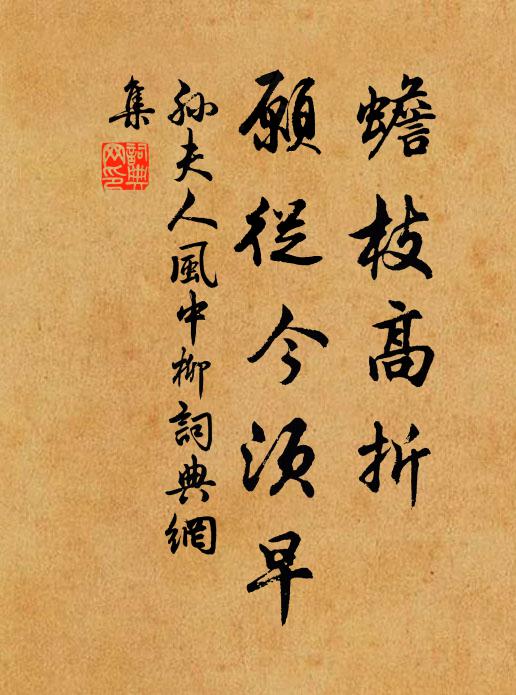 蟾枝高折
願從今須早
孫夫人風中柳詞典網
集
詞典
网印